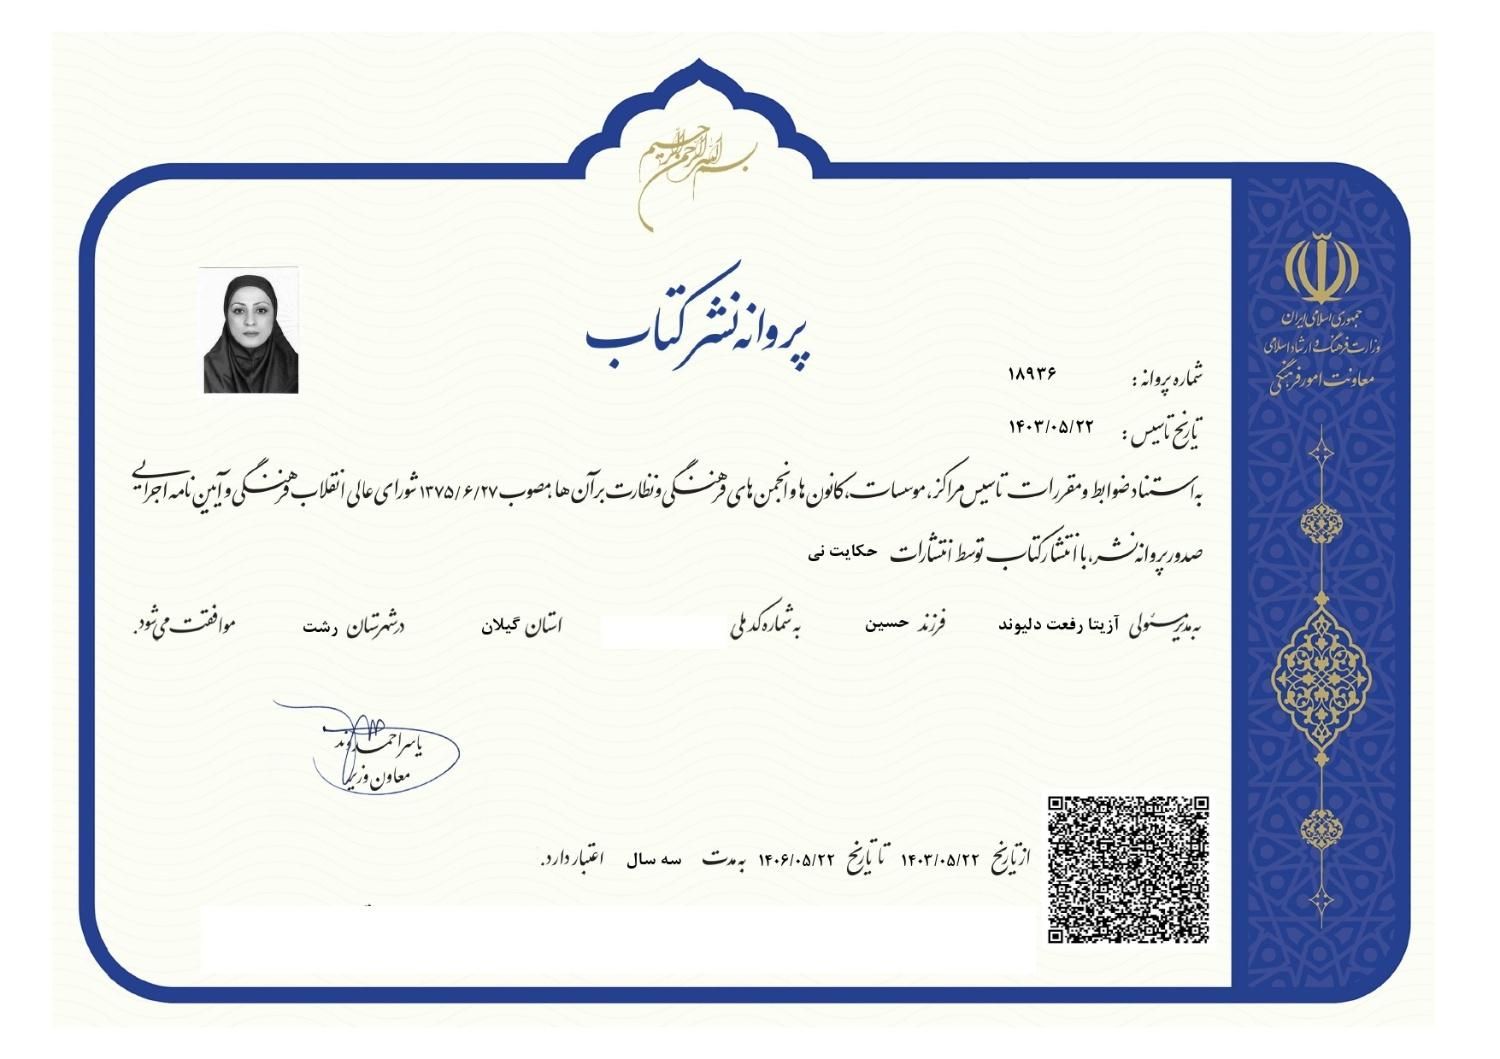 بسم الله الرحمن الرحیم
جمهوری اسلامی ایران
وزارت فرهنگ و ارشاد اسلامی
معاونت امور فرهنگی
پروانه نشر کتاب
شماره پروانه : ۱۸۹۳۶
تاریخ تاسیس : ۱۴۰۳/۰۵/۲۲
به استناد ضوابط و مقررات تاسیس مراکز، موسسات، کانون ها و انجمن های فرهنگی و نظارت بر آن ها، مصوب ۱۳۷۵/۶/۲۷ شورای عالی انقلاب فرهنگی و آیین نامه اجرایی
صدور پروانه نشر، با انتشار کتاب توسط انتشارات حکایت نی
به مدیر مسئولی آزیتا رفعت دلیوند فرزند حسین به شماره کد ملی استان گیلان در شهرستان رشت موافقت می شود.
یاسر احمدوند
معاون وزیر
از تاریخ ۱۴۰۳/۰۵/۲۲ تا تاریخ ۱۴۰۶/۰۵/۲۲ به مدت سه سال اعتبار دارد.